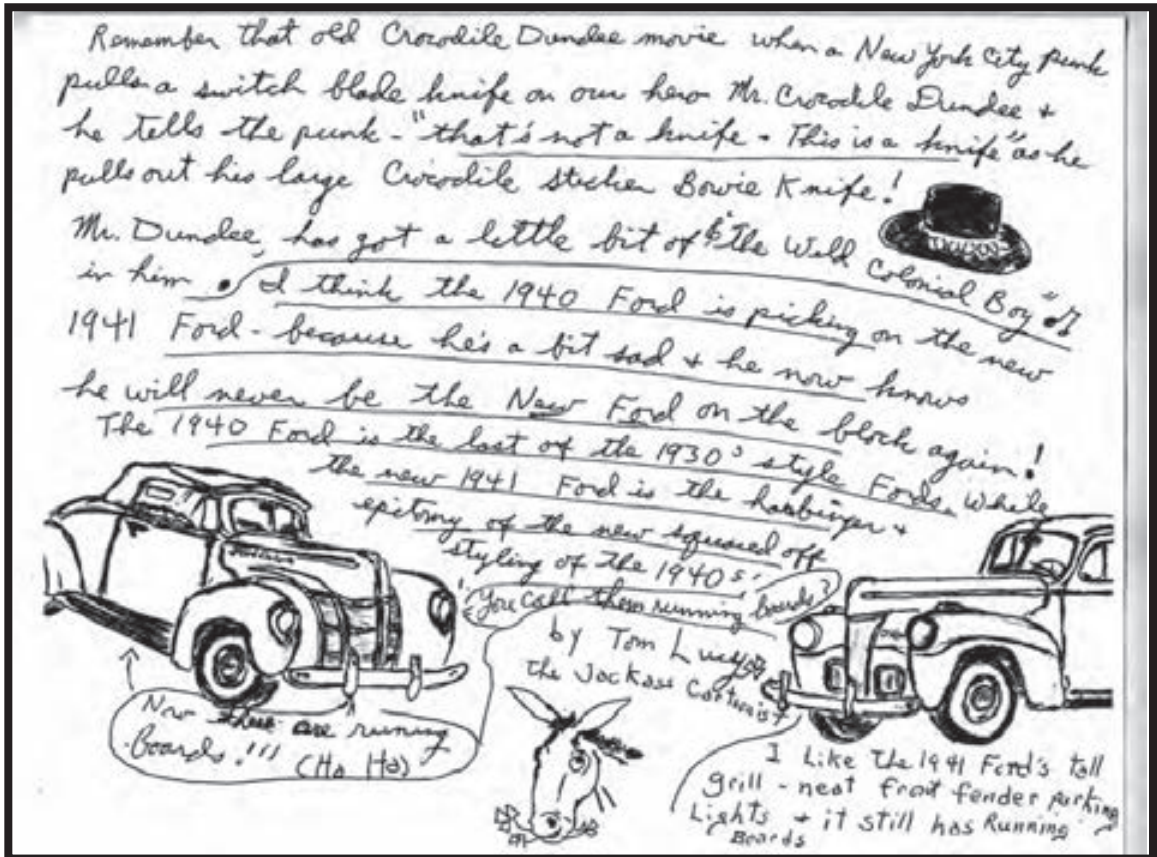 Remember that old Crocodile Dundee movie when a New York City punk
pulls a switch blade knife on our hero Mr. Crocodile Dundee +
he tells the punk - "that's not a knife - This is a knife" as he
pulls out his large Crocodile sticker Bowie Knife!
Mr. Dundee, has got a little bit of "the Wild Colonial Boy"!
in him. I think the 1940 Ford is picking on the new
1941 Ford - because he's a bit sad + he now knows
he will never be the New Ford on the block again!
The 1940 Ford is the last of the 1930s style Fords. While
the new 1941 Ford is the harbinger +
epitomy of the new squared off
styling of the 1940s'.
"You call them running boards?
by Tom
the Jackass Cartoonist
Now these are running
Boards!!!
(Ha Ha)
I Like the 1941 Ford's tall
grill - neat front fender parking
Lights + it still has Running
Boards